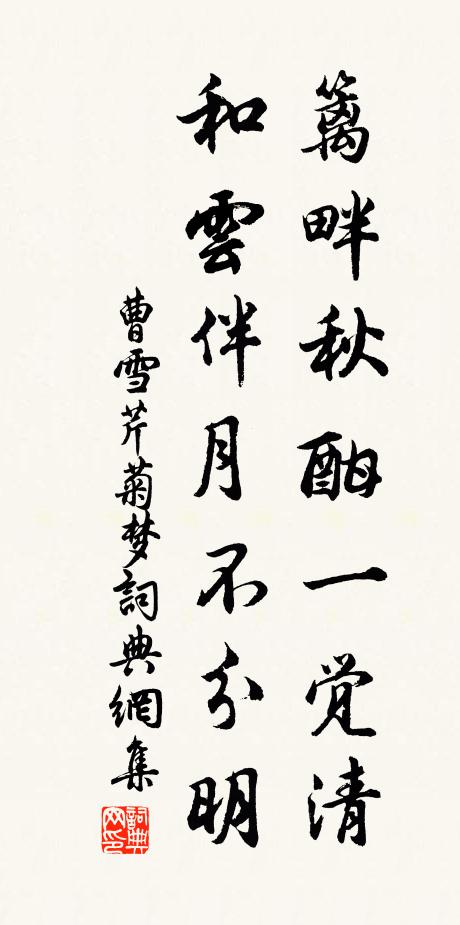 篱畔秋酣一觉清
和雲伴月不分明
曹雪芹菊梦詞典網集
詞典网印